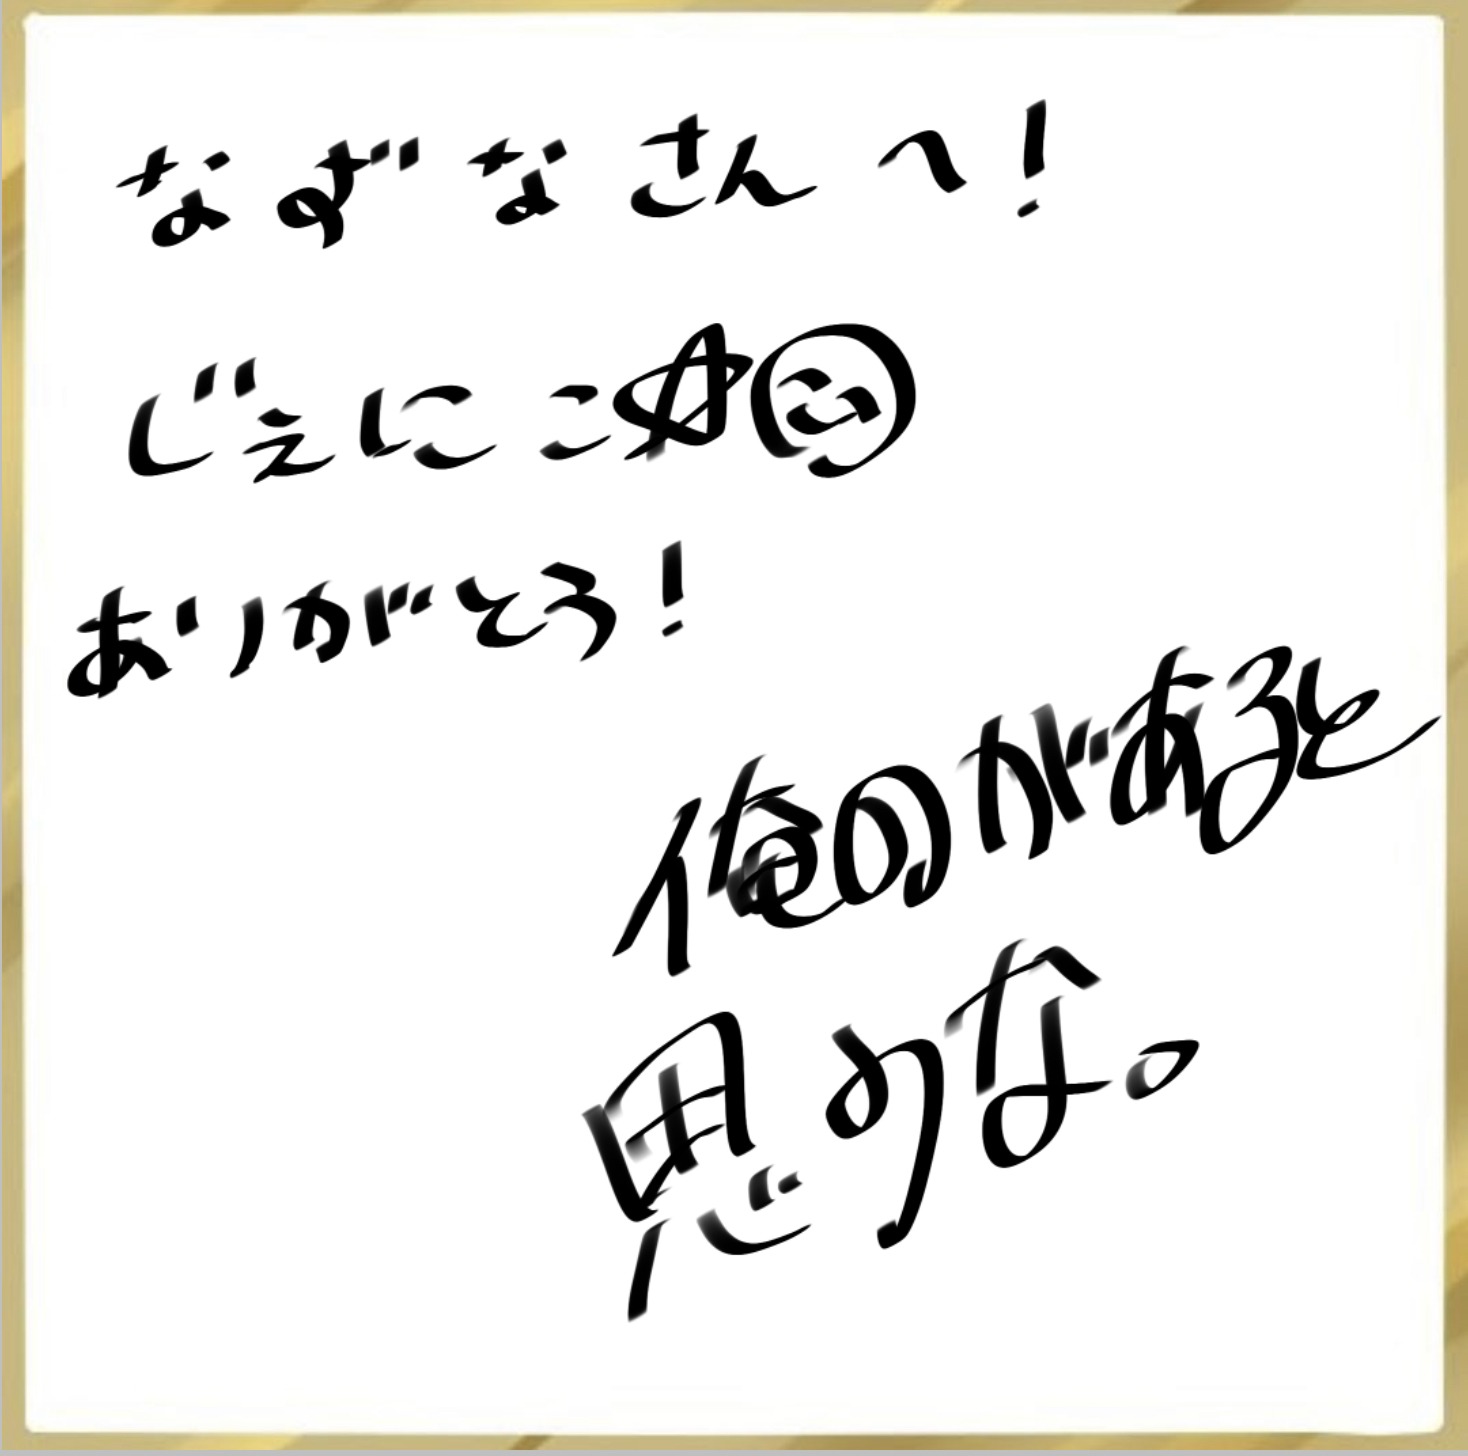 なずなさんへ!
じぇにこ☆
ありがとう!
俺のがあると
思うな。